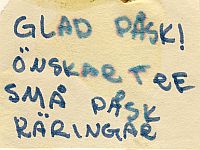 GLAD PÅSK!
ÖNSKAR TRE
SMÅ PÅSK
RÄRINGAR